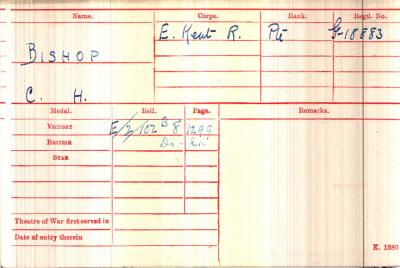 Name. Corps. Rank. Regtl. No.
E. Kent R. Pte G-18883
BISHOP
C. H.
Medal. Roll. Page. Remarks.
VICTORY E/2/102 B 8 1299
BRITISH Do Do
STAR
Theatre of War first served in
Date of entry therein
K. 1380